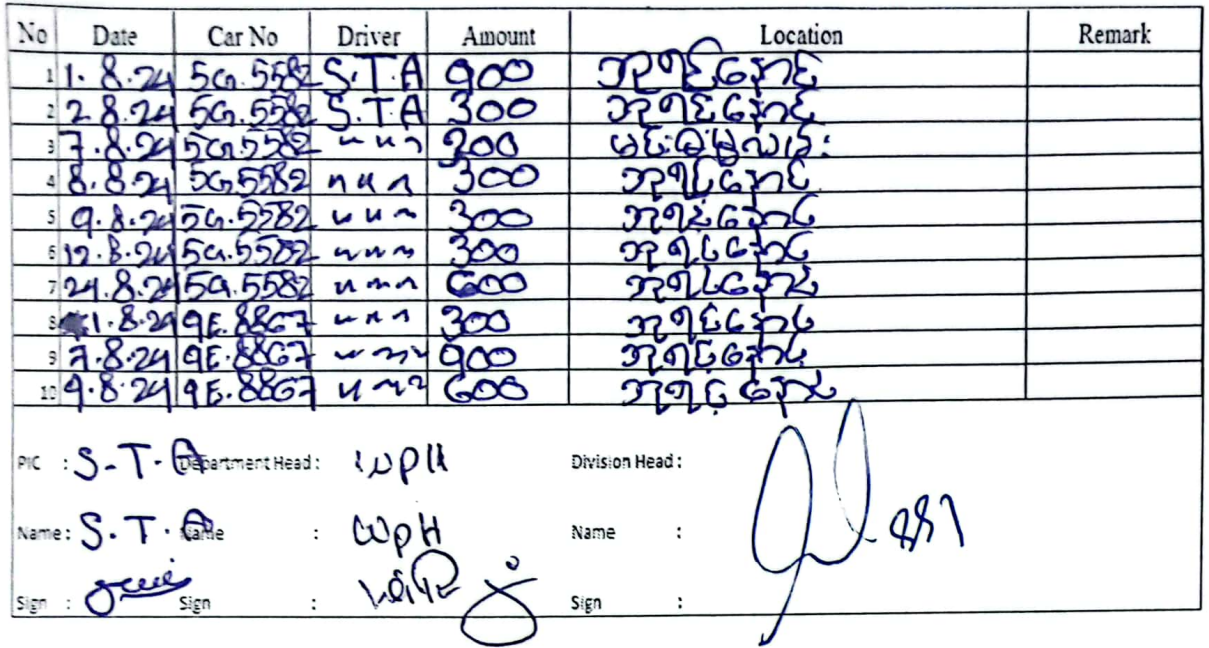 No Date Car No Driver Amount Location Remark
1 1.8.24 5G.5582 S.T.A 900 ဘုရင့်နောင်
2 2.8.24 5G.5582 S.T.A 300 ဘုရင့်နောင်
3 7.8.24 5G.5582 " " " 300 မင်းဓမ္မလမ်း
4 8.8.24 5G.5582 " " " 300 ဘုရင့်နောင်
5 9.8.24 5G.5582 " " " 300 ဘုရင့်နောင်
6 12.8.24 5G.5582 " " " 300 ဘုရင့်နောင်
7 21.8.24 5G.5582 " " " 600 ဘုရင့်နောင်
8 1.8.24 9E.8867 " " " 300 ဘုရင့်နောင်
9 7.8.24 9E.8867 " " " 900 ဘုရင့်နောင်
10 9.8.24 9E.8867 " " " 600 ဘုရင့်နောင်
PIC : S.T.A Department Head : WPH Division Head :
Name : S.T.A Name : WPH Name :
Sign : Sign : Sign :